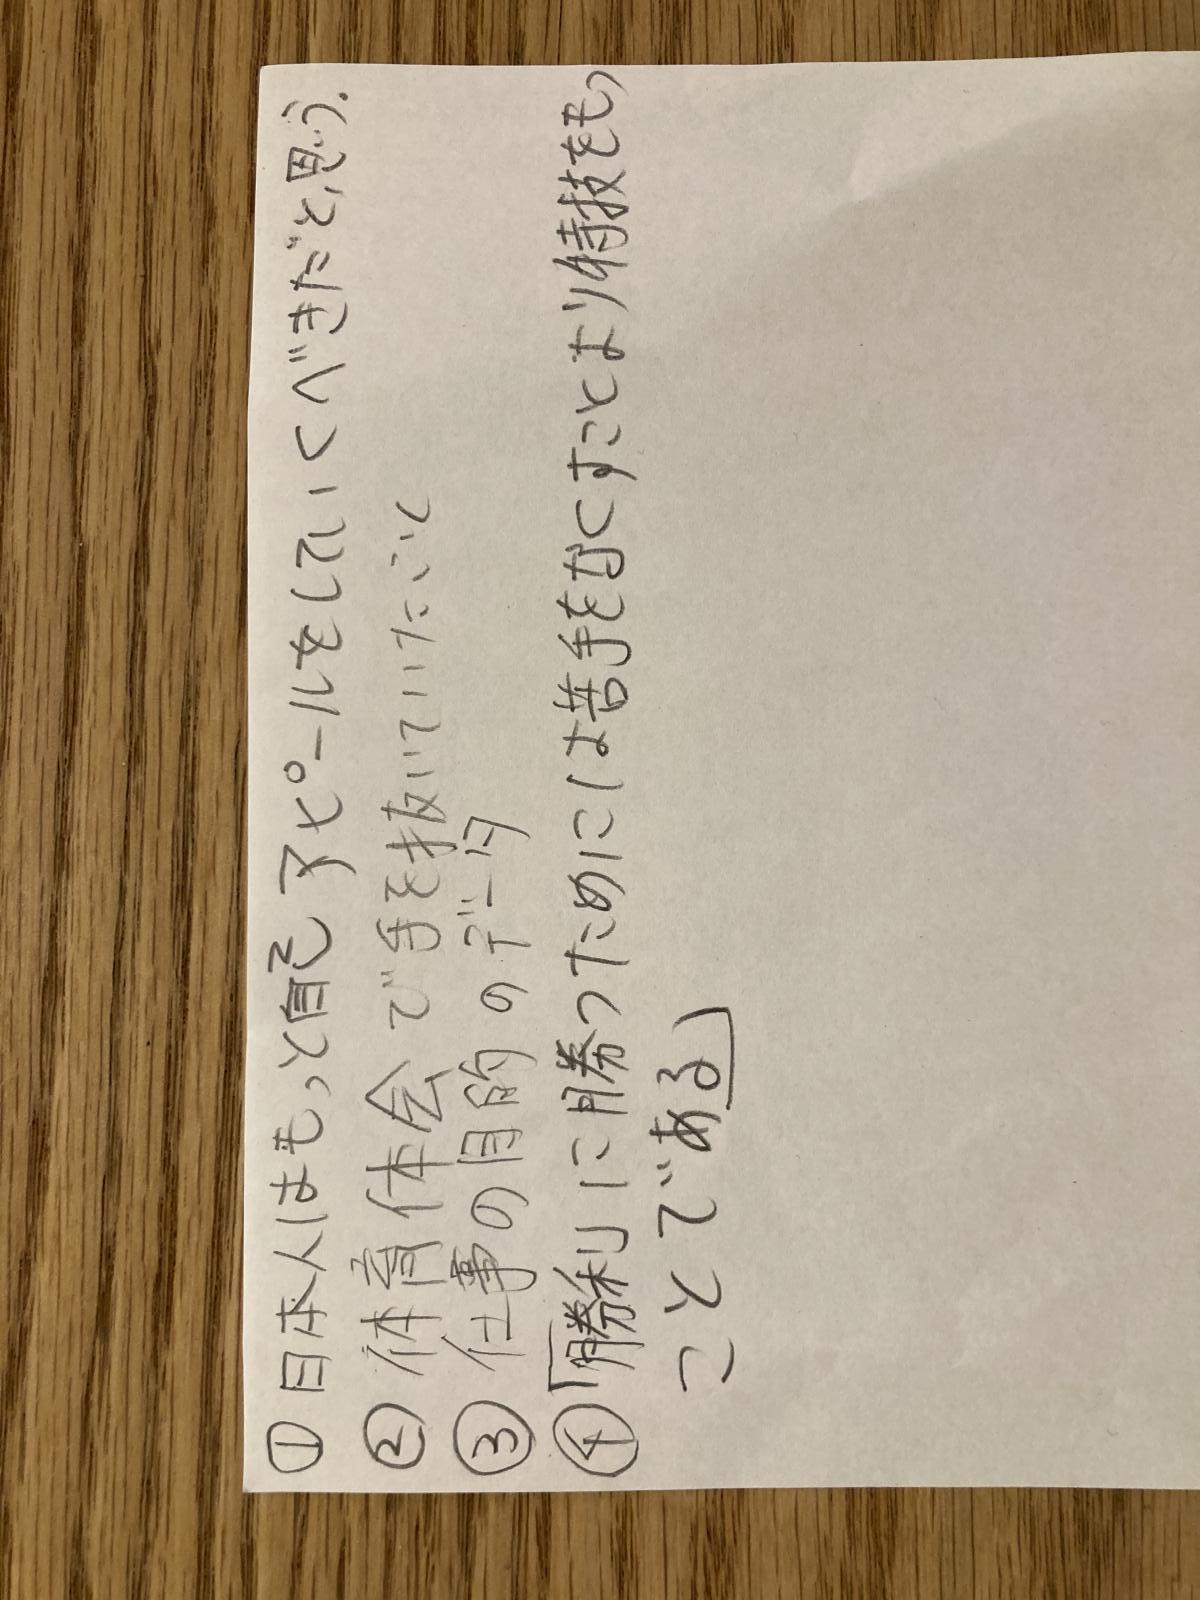 ① 日本人はもっと自己アピールをしていくべきだと思う.
② 体育体会で手を抜いていたこと
③ 仕事の目的のデータ
④「勝利に勝つためには苦手をなくすことより特技をもつ
ことである」